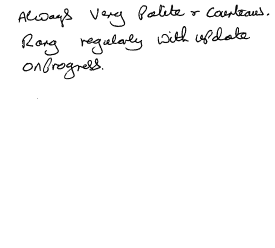 Always Very Polite & Courteous.
Rang regularly with update
on Progress.